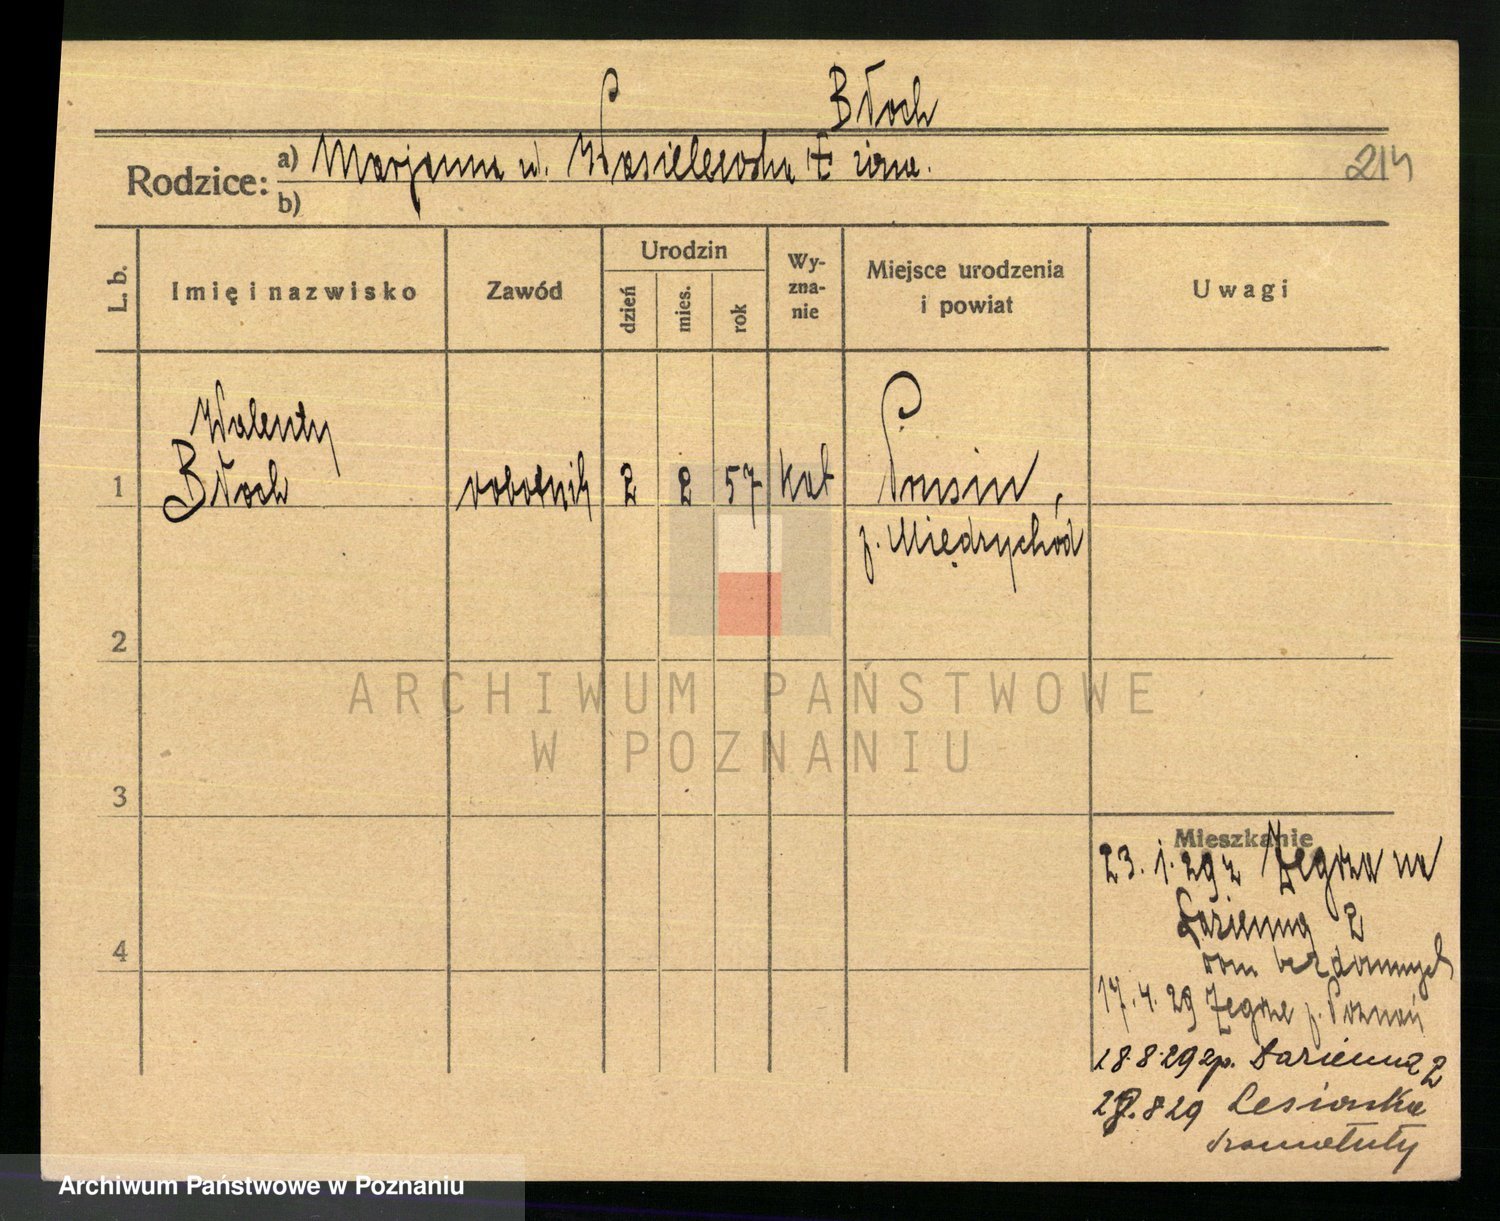 Błoch
Rodzice: a) Marjanna u. Wasielewska żona.
b)
214
L. b.
Imię i nazwisko
Zawód
Urodzin
dzień
mies.
rok
Wy-
zna-
nie
Miejsce urodzenia
i powiat
Uwagi
Walenty
1 Błoch robotnik 2 2 57 kat
p. Międzychód
2
3
4
Mieszkanie
23. 1. 29 z Zegrza na
Łazienną 2
dom bezdomnych
17. 4. 29 Zegrze p. Poznań
18.8.29 zp. Łazienna 2
8 29
ARCHIWUM PAŃSTWOWE
W POZNANIU
Archiwum Państwowe w Poznaniu